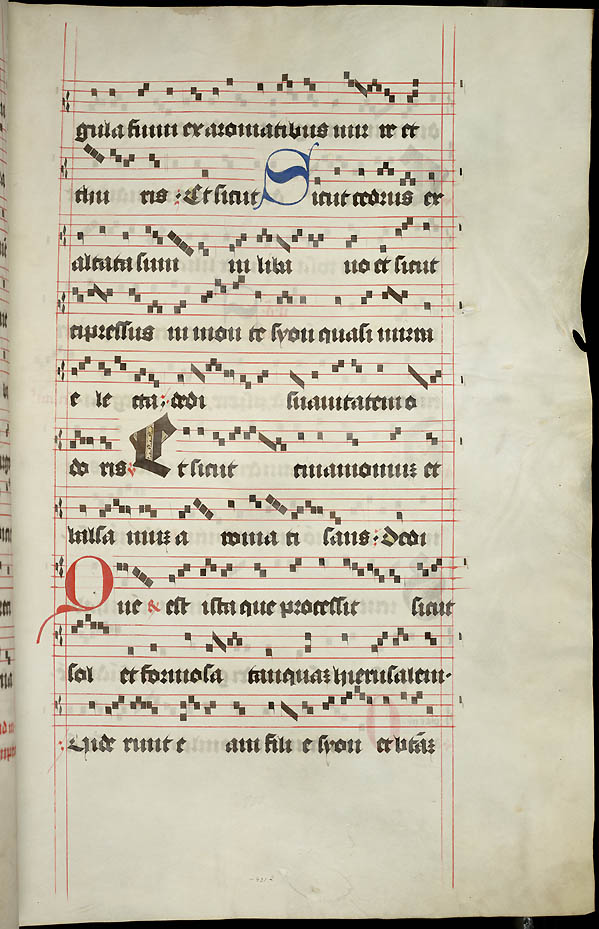 gula sunt ex aromatibus mir re et
thu ris : Et sicut Sicut cedrus ex
altata sum in liba no et sicut
cipressus in mon te syon quasi mirra
e le cta : dedi suauitatem o
do ris Et sicut cinamomuꝫ et
balsa muꝫ a roma ti sans : Dedi
Que est ista que processit sicut
sol et formosa tanquaꝫ hierusalem ·
: Uide runt e am fili e syon et btāꝫ